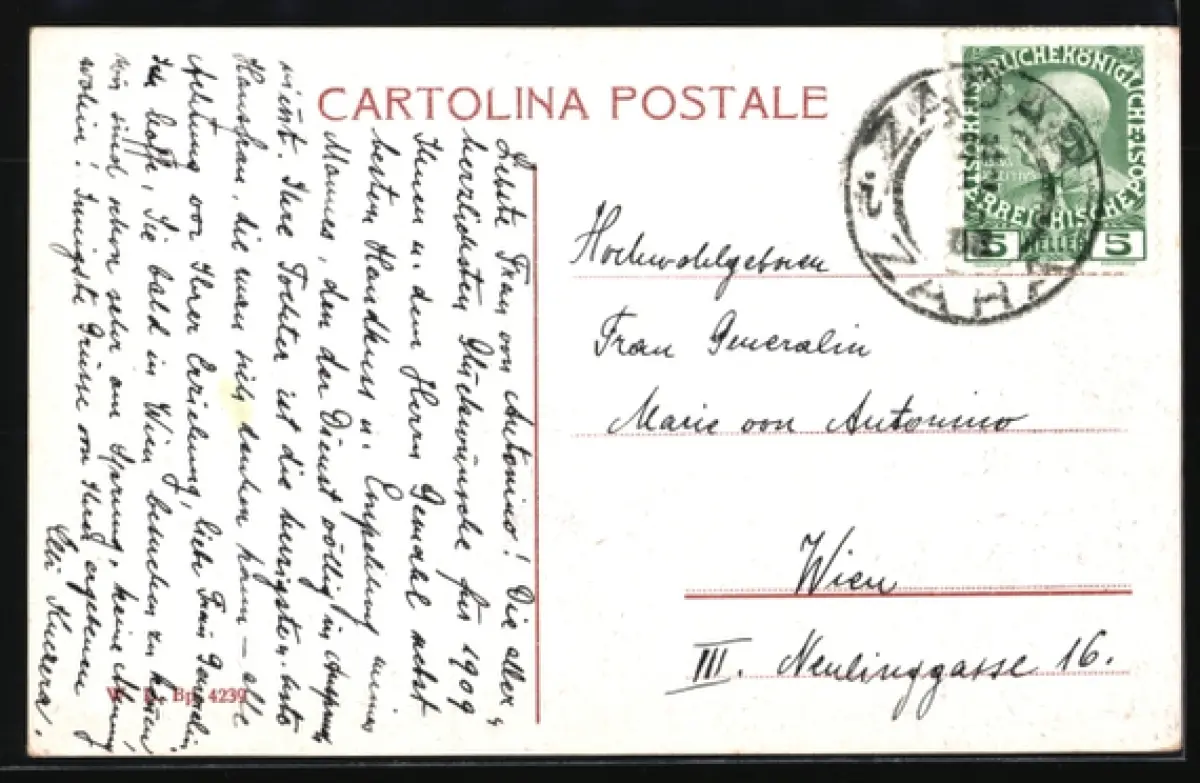 CARTOLINA POSTALE
Liebste Frau von Antonino! Die aller-
herzlichsten Glückwünsche für 1909
Ihnen u. dem Herrn Gemahl nebst
bestem Handkuss u. Empfehlung meines
Mannes, den der Dienst völlig in Anspruch
nimmt. Ihre Tochter ist die u. beste
Hausfrau, die man sich denken kann — alle
Achtung vor Ihrer Erziehung, liebe Frau Generalin,
Ich hoffe, Sie bald in Wien besuchen zu können,
wir sind schon sehr am Sprung, keine Ahnung
wohin! Innigste Grüsse von Ihrer ergebenen
Elli
Hochwohlgeboren
Frau Generalin
Marie von Antonino
Wien
III. Neulinggasse 16.
ZADAR
ZARA
KAISERLICHEKÖNIGLICHE
ÖSTERREICHISCHE POST
5 HELLER 5
Bp. 4239